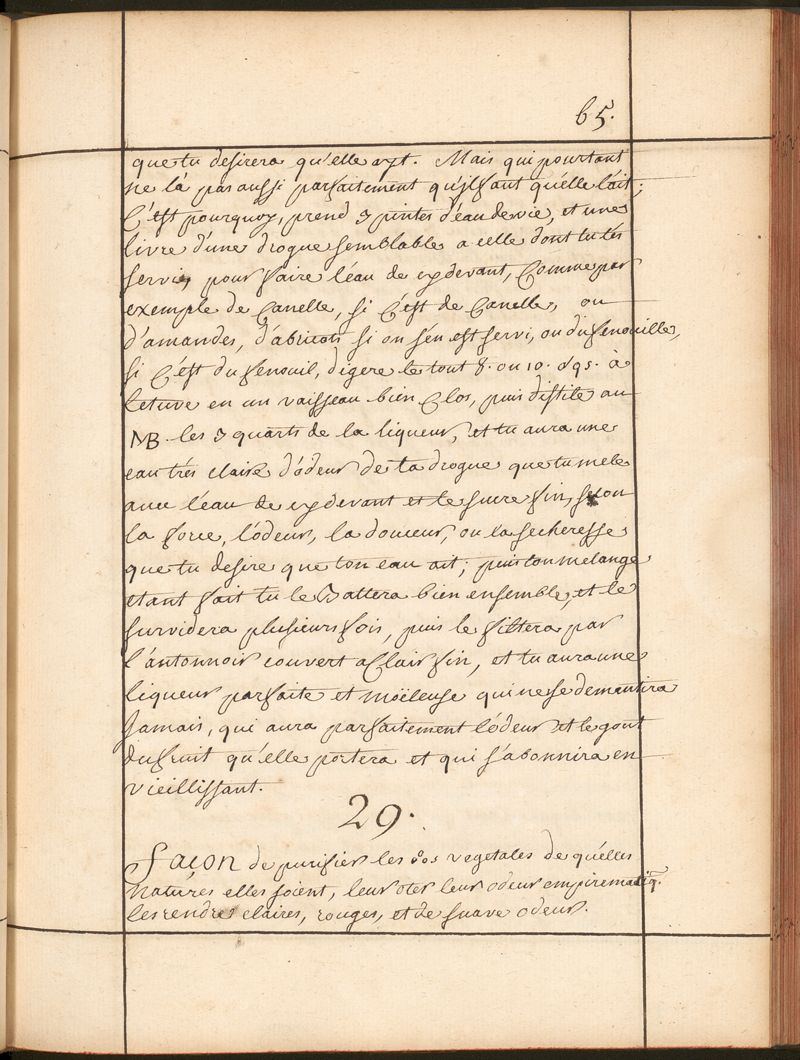 65.
que tu desirera qu'elle ayt. Mais qui pourtant
ne la pas aussi parfaitement qu'il faut qu'elle l'ait;
C'est pourquoy, prend 3 pintes d'eau de vie, et une
livre d'une drogue semblable a celle dont tu t'es
servie, pour faire l'eau de cy devant, Comme par
exemple de Canelle, si C'est de Canelle, ou
d'amandes, d'abricots si on s'en est servi, ou du fenouille,
si C'est du fenouil, digere le tout 8. ou 10. à
letuve en un vaisseau bien Clos, puis distile au
MB. les 3 quarts de la liqueur, et tu aura une
eau trés claire d'ódeur de ta drogue que tu mele
avec l'eau de cy devant et le sucre fin, selon
la force, l'ódeur, la douceur, ou la secheresse
que tu desire que ton eau ait; puis ton melange
etant fait tu le Battera bien ensemble, et le
survidera plusieurs fois, puis le filtera par
l'antonnoir couvert a Clair fin, et tu aura une
liqueur parfaite et moëleuse qui ne se demantira
Jamais, qui aura parfaitement l'ódeur et le gout
du fruit qu'elle portera et qui s'abonnira en
vieillissant.
29.
Façon de purifier les vegetales de quélles
natures elles soient, leur oter leur odeur empirematiq.
les rendre claires, rouges, et de suave odeur.